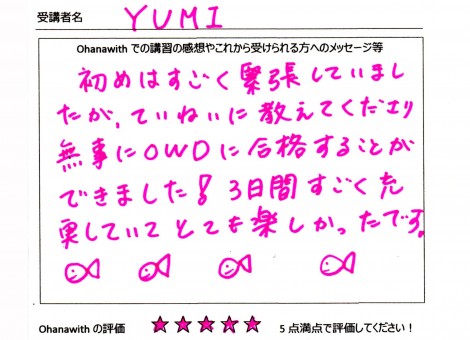 受講者名 YUMI
Ohanawith での講習の感想やこれから受けられる方へのメッセージ等
初めはすごく緊張していまし
たが、ていねいに教えてくださり
無事にOWDに合格することが
できました！3日間すごく充
実していてとても楽しかったです。
Ohanawith の評価 ★★★★★ 5点満点で評価してください！